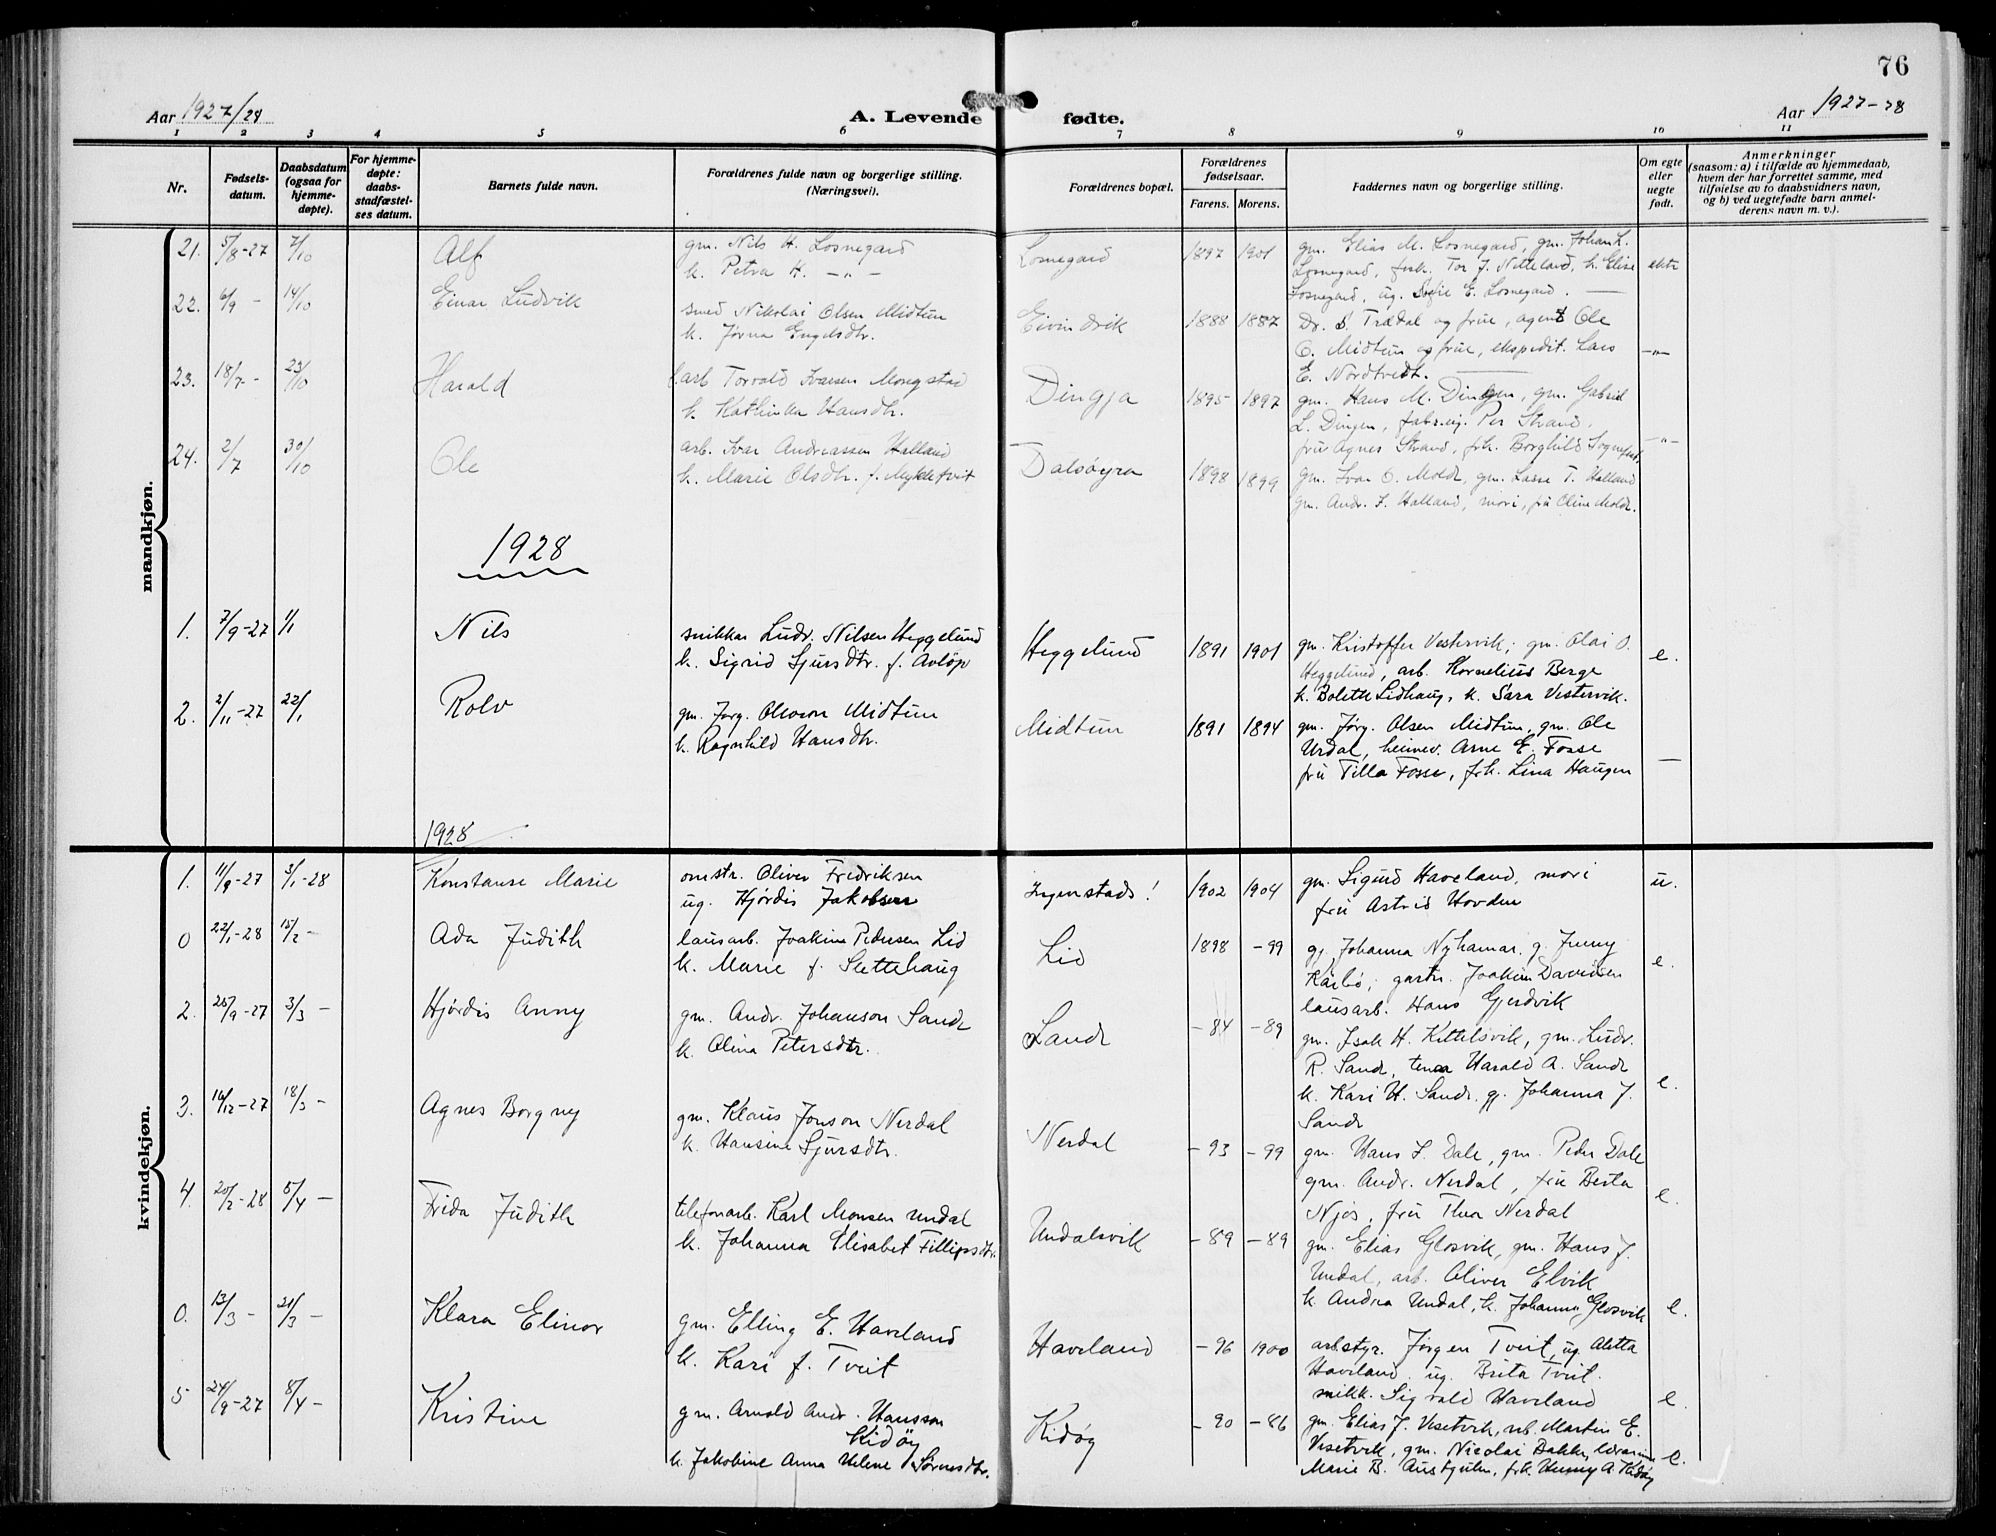 76
Aar 1927/28
A. Levende fødte.
Aar 1927-28
1 2 3 4 5 6 7 8 9 10 11
Nr.
Fødsels-
datum.
Daabsdatum
(ogsaa for
hjemme-
døpte).
For hjemme-
døpte:
daabs-
stadfæstel-
ses datum.
Barnets fulde navn.
Forældrenes fulde navn og borgerlige stilling.
(Næringsvei).
Forældrenes bopæl.
Forældrenes
fødselsaar.
Farens. Morens.
Faddernes navn og borgerlige stilling.
Om egte
eller
uegte
født.
Anmerkninger
(saasom: a) i tilfælde av hjemmedaab,
hvem der har forrettet samme, med
tilføielse av to daabsvidners navn,
og b) ved uegtefødte barn anmel-
derens navn m. v.).
mandkjøn.
21. 5/8-27 7/10 Alf
gm. Nils H. Losnegard
k. Petra H. -"-
Losnegard 1897 1901
gm. Elias M. Losnegard, gm. Johan L.
Losnegard, fisk. Tor J. Nitteland, k. Elise
Losnegard, ug. Sofie E. Losnegard.
ekte
22. 6/9 - 14/10 Einar Ludvik
smed Nikolai Olsen Midtun
k. Jørna Engelsdtr.
Eivindvik 1888 1887
Dr. S. Trædal og frue, agent Ole
O. Midtun og frue, ekspedit. Lars
E. Nordtvedt.
-"-
23. 18/7 - 23/10 Harald
f.arb Torvald Ivarsen Mongstad
k. Kathinka Hansdtr.
Dingja 1895 1897
gm. Hans M. Dingen, gm. Gabriel
L. Dingen, fabr.eig. Per Strand,
fru Agnes Strand, frk. Borghild Sognefest.
-"-
24. 2/7 30/10 Ole
arb. Ivar Andreassen Halland
k. Marie Olsdtr. f. Mykletvit
Dalsøyra 1898 1899
gm. Ivar O. Molde, gm. Lasse T. Halland
gm. Andr. I. Halland, mori, fru Oline Molde.
1928
1. 7/9-27 1/1 Nils
snikkar Ludv. Nilsen Heggelund
k. Sigrid Sjursdtr. f. Avløp
Heggelund 1891 1901
gm. Kristoffer Vestervik; gm. Olai O.
Heggelund, arb. Kornelius Berge
k. Bolette Lidhaug, k. Sara Vestervik.
e.
2. 2/11-27 22/1 Rolv
gm. Jørg. Olsson Midtun
k. Ragnhild Hansdtr.
Midtun 1891 1894
gm. Jørg. Olsen Midtun, gm. Ole
Urdal, heimev. Arne E. Fosse
fru Tilla Fosse, frk. Lina Haugen
—
kvindekjøn.
1928
1. 11/9-27 3/1-28 Konstanse Marie
omstr. Oliver Fredriksen
ug. Hjørdis Jakobsen
Ingenstads! 1902 1904
gm. Sigurd Haveland, mori
fru Astrid Hovden
u.
0 22/1-28 15/2 - Ada Judith
lausarb. Joakim Pedersen Lid
k. Marie f. Slettehaug
Lid 1898 -99
gj. Johanna Nyhamar. g. Jenny
Kårbø, gartn. Joakim Davidsen
lausarb. Hans Gjerdvik
e.
2. 25/9-27 3/3 - Hjørdis Anny
gm. Andr. Johanson Sande
k. Olina Petersdtr.
Sande -84 -89
gm. Isak H. Kittelsvik, gm. Ludv.
R. Sande, tena Harald A. Sande
k. Kari H. Sande, gj. Johanna J.
Sande
e.
3. 16/12-27 18/3 - Agnes Borgny
gm. Klaus Jonson Nerdal
k. Hansine Sjursdtr.
Nerdal -93 -99
gm. Hans L. Dale, gm. Peder Dale
gm. Andr. Nerdal, fru Berta
Njøs, fru Thea Nerdal
e.
4. 20/2-28 5/4 - Frida Judith
telefonarb. Karl Monsen Undal
k. Johanna Elisabet Fillipsdtr.
Undalsvik -89 -89
gm. Elias Glosvik, gm. Hans J.
Undal, arb. Oliver Elvik
k. Andrea Undal, k. Johanna Glosvik
e.
0. 13/3 - 21/3 - Klara Elinor
gm. Elling E. Haveland
k. Kari f. Tveit
Haveland -96 1900
arbstyr. Jørgen Tveit, ug. Aletta
Haveland, ug. Brita Tveit.
snikk. Sigvald Haveland
e.
5 24/9-27 8/4 - Kristine
gm. Arnold Andr. Hansson
Kidøy
k. Jakobine Anna Helene Sørensdtr.
Kidøy -90 -86
gm. Elias J. Visetvik, Martin E.
Visetvik, gm. Nicolai Dakke, lærarinne
Marie B. Austgulen, frk. A. Kidøy
e.